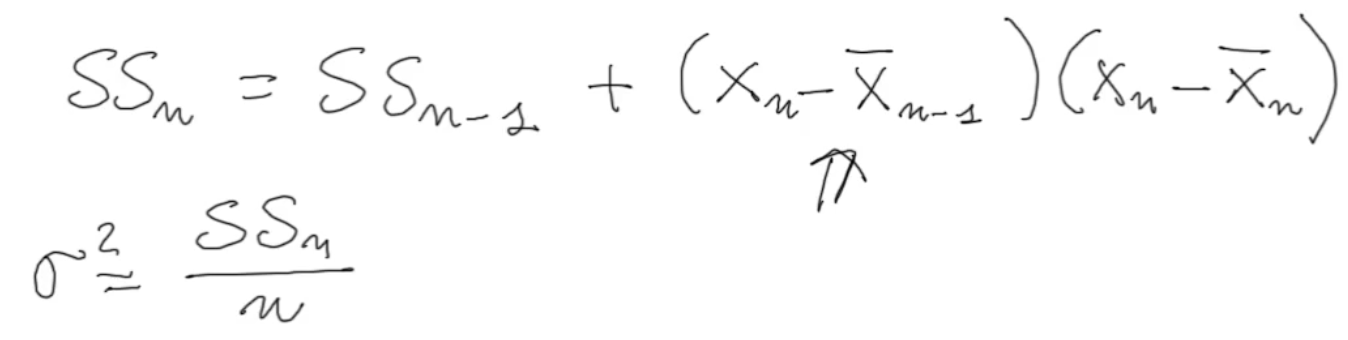 SSₙ = SSₙ₋₁ + (xₙ − x̄ₙ₋₁)(xₙ − x̄ₙ)
⇑
σ² = SSₙ / n